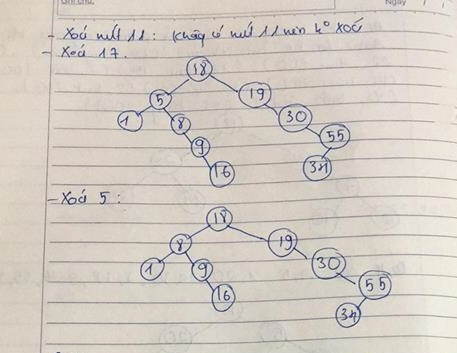 Ghi chú:
Ngày / /
- Xoá nút 11: Không có nút 11 nên ko xoá
- Xoá 17.
18
5 19
1 8 30
9 55
16 34
- Xoá 5:
18
8 19
1 9 30
16 55
34